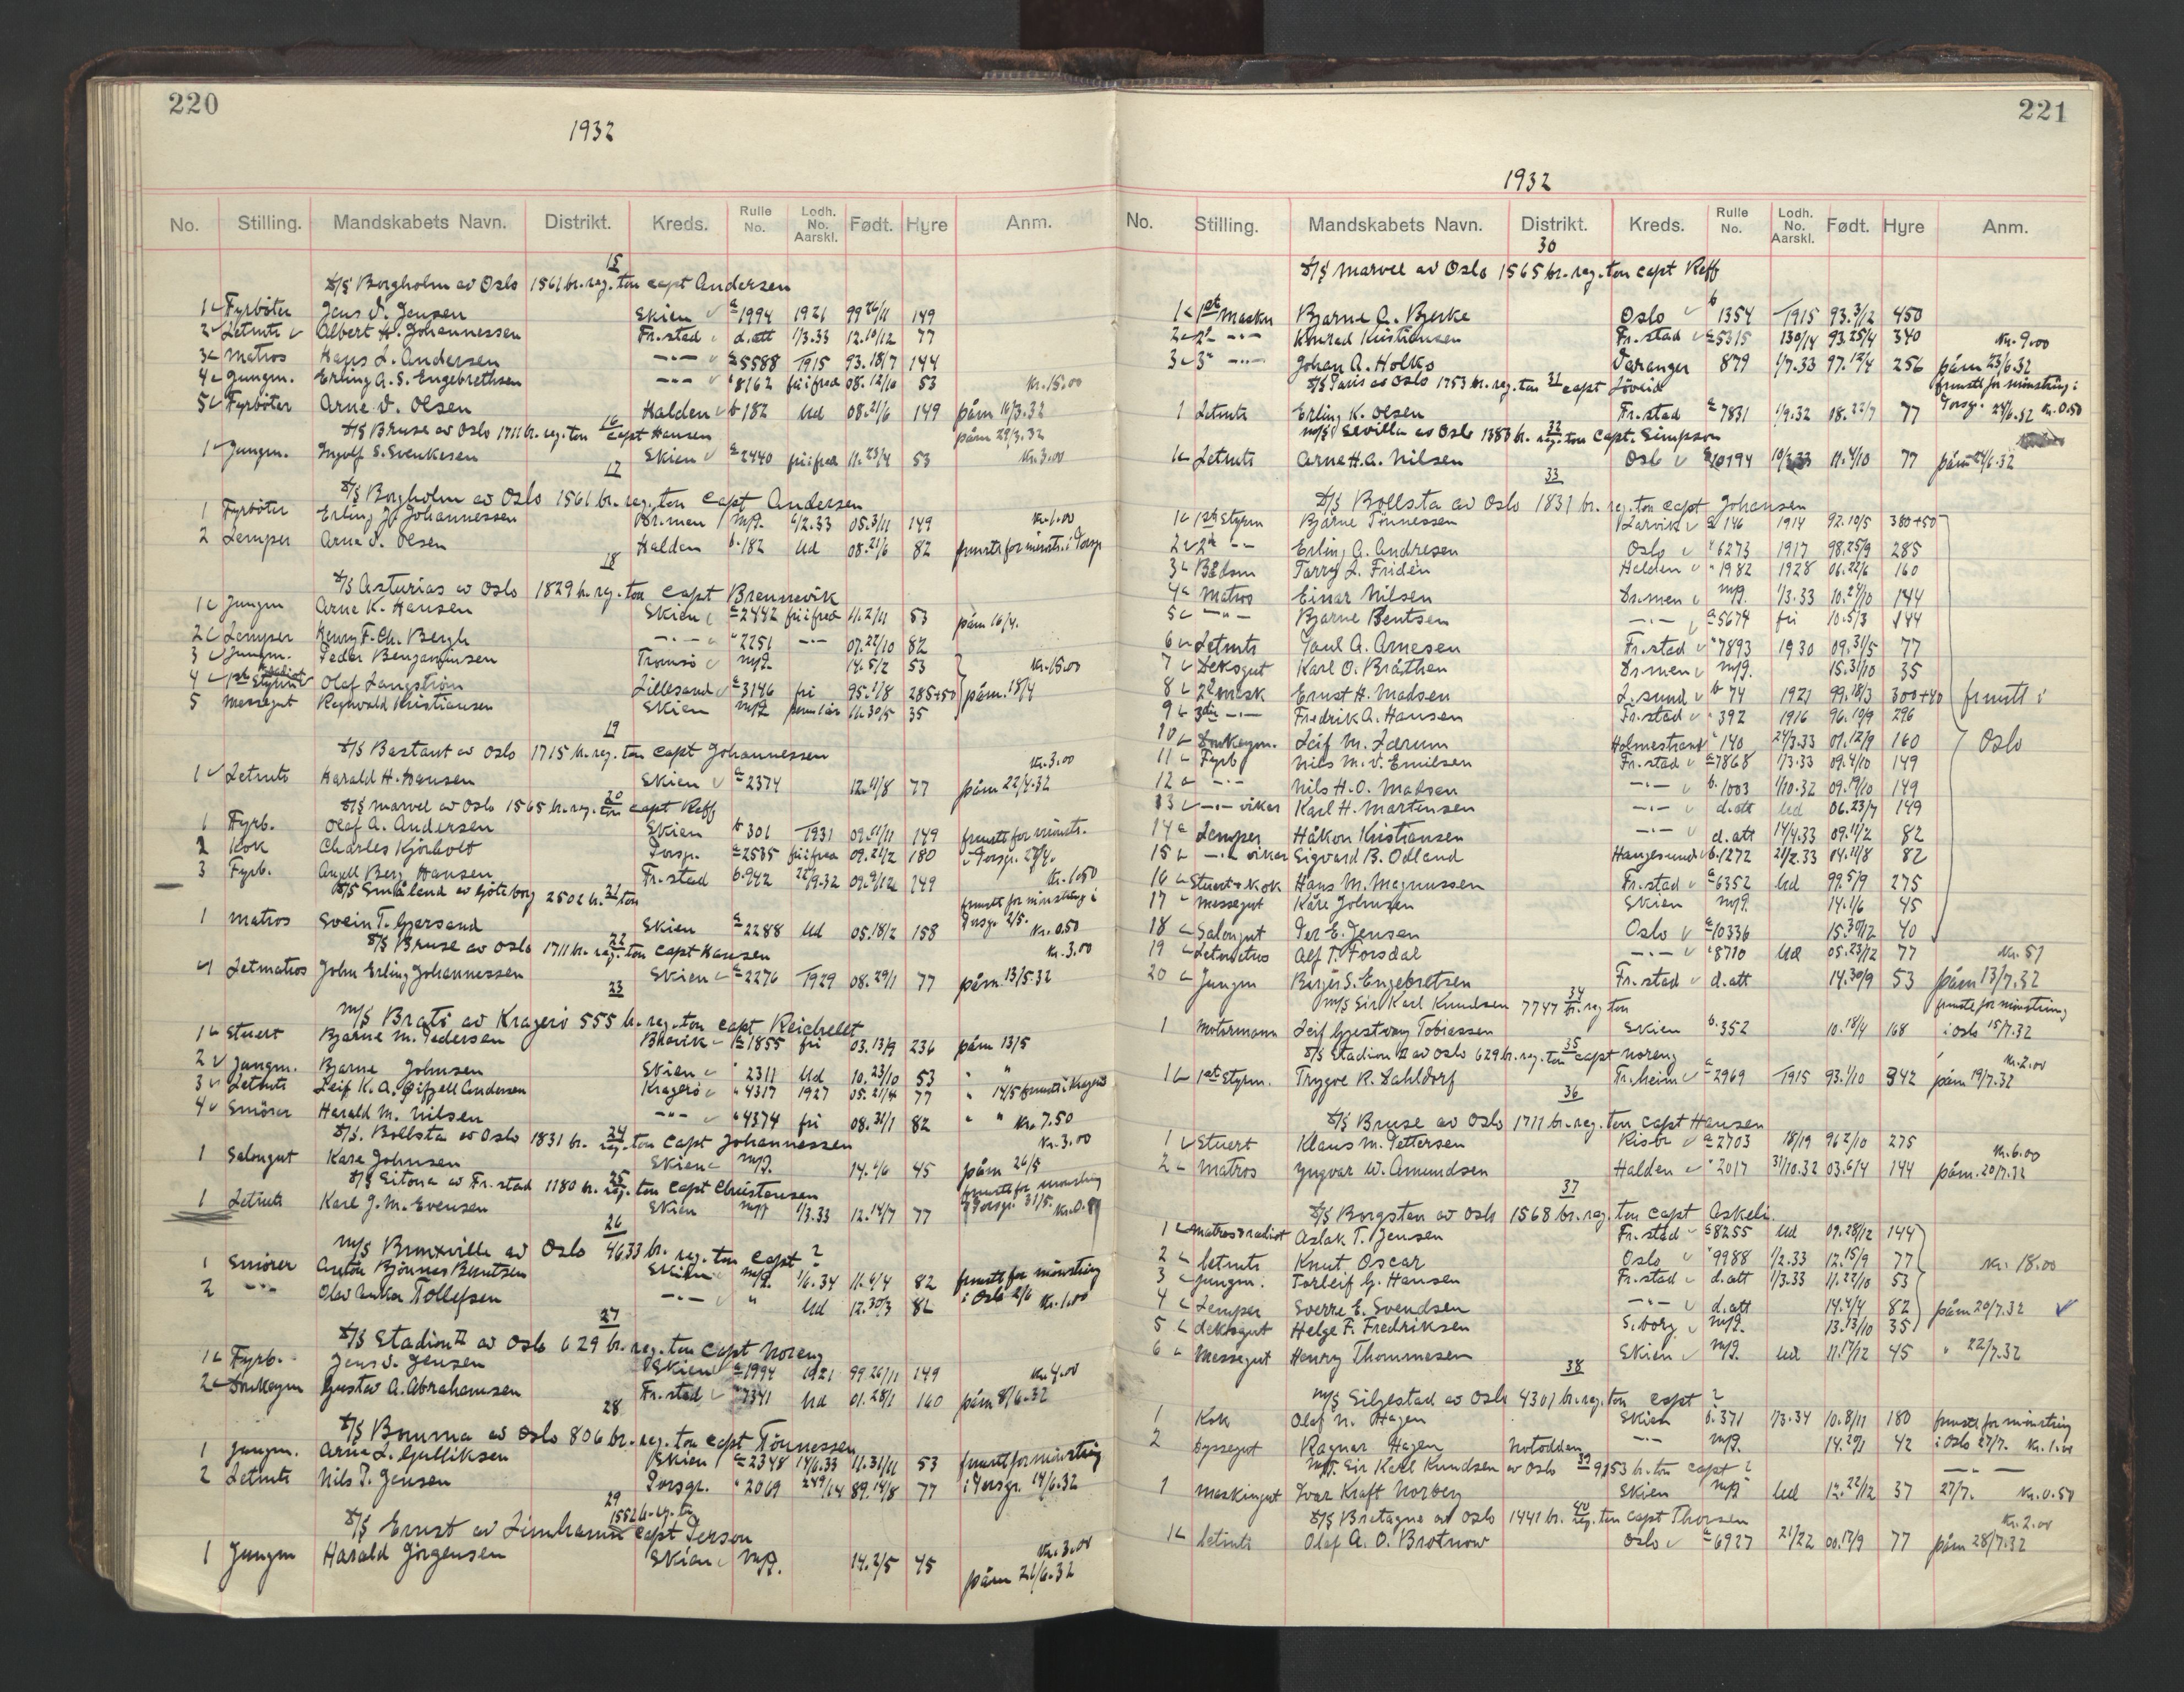 220
1932
No. Stilling. Mandskabets Navn. Distrikt. Kreds. Rulle No. Lodh. No. Aarskl. Født. Hyre Anm.
15
D/S Borgholm av Oslo 1561 br. reg. ton capt Andersen
1 Fyrböter Jens V. Jensen Skien a 1994 1921 99 26/11 149
2 Letmts Albert H. Johannessen Fr.stad d.att 1/3.33 12.10/12 77
3 Matros Hans L. Andersen -"- a 5588 1915 93.18/7 144
4 Jungm. Erling A. S. Engebrethsen -"- " 8162 fri i fred 08.12/10 53 Kr. 15.00
5 Fyrböter Arne V. Olsen Halden b 182 Ud 08.21/6 149 påm 16/3.32
16
D/S Bruse av Oslo 1711 br. reg. ton capt Hansen påm 29/3.32
1 Jungm. Ingolf S. Svenkesen Skien a 2440 fri i fred 11.23/4 53 Kr. 3.00
17
D/S Borgholm av Oslo 1561 br. reg. ton capt Andersen
1 Fyrböter Erling J. Johannessen Dr.men mg. 1/2.33 05.3/11 149 Kr. 1.00
2 Lemper Arne V. Olsen Halden b. 182 Ud 08.21/6 82 frmstt for mönstr. i Porsgr
18
D/S Asturias av Oslo 1829 br. reg. ton capt Brennevik
1 Jungm Arne K. Hansen Skien a 2442 fri i fred 11.2/11 53 påm 16/4.
2 Lemper Henry F. Ch. Bergh -"- " 2251 -"- 07.22/10 82
3 Jungm. Peder Benjaminsen Tromsö mg. 14.5/2 53 Kr. 15.00
4 1st Styrm & radiot Olaf Langström Lillesand a 3146 fri 95.1/8 285+50 påm. 18/4
5 Messegut Raghvald Kristiansen Skien mg 11.30/5 35
19
D/S Bastant av Oslo 1715 br. reg. ton capt Johannessen
Kr. 3.00
1 Letmts Harald H. Hansen Skien a 2374 12.11/8 77 påm 22/4.32
20
D/S Marvel av Oslo 1565 br. reg. ton capt Reff
1 Fyrb. Olaf A. Andersen Skien b 301 1931 09.11/11 149 frmstt for mönstr.
2 Kok Charles Kjörholt Porsgr. a 2535 fri i fred 09.21/2 180 i Porsgr. 27/4.
3 Fyrb. Angell Berg Hansen Fr.stad b. 942 22/9.32 09.9/12 149 Kr. 1.50
21
D/S Småland av Göteborg 2502 br. ton frmstt for mönstring i
1 Matros Svein T. Gjersand Skien a 2288 Ud 05.18/2 158 Porsgr. 2/5. Kr. 0.50
22
D/S Bruse av Oslo 1711 br. reg. ton capt Hansen Kr. 3.00
1 Letmatros John Erling Johannessen Skien a 2276 1929 08.29/1 77 påm. 13/5.32
23
M/S Brati av Kragerö 555 br. reg. ton capt Reichelet
1 Stuert Bjarne M. Pedersen Brevik a 1855 fri 03.13/9 236 påm 13/5
2 Jungm. Bjarne Johnsen Skien " 2311 Ud 10.23/10 53 " "
3 Letmts Leif K. A. Gifjell Andersen Kragerö " 4317 1927 05.21/4 77 " 14/5 frmstt i Kragerö
4 Smörer Harald M. Nilsen -"- " 4374 fri 08.31/1 82 " " Kr. 7.50
24
D/S. Bollsta av Oslo 1831 br. reg. ton capt Johannessen Kr. 3.00
1 Salongut Kåre Johnsen Skien mg. 14.1/6 45 påm 26/5
25
D/S Sitona av Fr.stad 1180 br. reg. ton capt Christensen frmstt for mönstring
1 Letmts Karl J. M. Evensen Skien mg 1/3.33 12.14/7 77 i Porsgr. 31/5.
26
M/S Bronxville av Oslo 4633 br. reg. ton capt ?
1 Smörer Anton Bjönnes Berntsen Skien mg. 1/6.34 11.6/4 82 frmstt for mönstring
2 -"- Olav Anker Tollefsen -"- " Ud 12.30/3 82 i Oslo 2/6 Kr. 1.00
27
D/S Stadion II av Oslo 629 br. reg. ton capt Noreng
1 Fyrb. Jens V. Jensen Skien a 1994 1921 99 26/11 149 Kr. 4.00
2 Donkeym Gustav A. Abrahamsen Fr.stad " 7341 Ud 01.28/1 160 påm 8/6.32
28
D/S Bomma av Oslo 806 br. reg. ton capt Tönnessen
1 Jungm. Arne L. Gulliksen Skien a 2348 14/6.33 11.31/11 53 frmstt for mönstring
2 Letmts Nils T. Jensen Porsgr. " 2069 249/14 89.14/8 77 i Porsgr. 14/6.32
29
1552 br. reg. ton
D/S Ernst av Limhamn capt Person
1 Jungm Harald Jörgensen Skien mg. 14.2/5 45 Kr. 3.00
påm 21/6.32
221
1932
No. Stilling. Mandskabets Navn. Distrikt. Kreds. Rulle No. Lodh. No. Aarskl. Født. Hyre Anm.
30
D/S Marvel av Oslo 1565 br. reg. ton capt Reff
1 1st Maskn Bjarne A. Bjerke Oslo b 1354 1915 93.3/12 450
2 2n -"- Konrad Kristiansen Fr.stad a 5315 130/14 93.25/4 340 Kr. 9.00
3 3n -"- Johan A. Holks Varanger 879 1/7.33 97.12/4 256 påm 23/6.32
31
D/S Paris av Oslo 1753 br. reg. ton capt Löveid frmstt for mönstring i
1 Letmts Erling K. Olsen Fr.stad a 7831 1/9.32 08.22/7 77 Porsgr. 24/6.32 Kr. 0.50
32
M/S Sevilla av Oslo 1383 br. reg. ton capt. Simpson
1 Letmts Arne H. A. Nilsen Oslo a 10194 11.4/10 77 påm 24/6.32
33
D/S Bollsta av Oslo 1831 br. reg. ton capt Johansen
1 1st Styrm Bjarne Tönnessen Larvik a 146 1914 92.10/5 380+50
2 2n -"- Erling A. Andresen Oslo " 6273 1917 98.25/9 285
3 Bådsm Tarry L. Fridén Halden " 1982 1928 06.22/6 160
4 Matros Einar Nilsen Dr.men mg. 1/3.33 10.24/10 144
5 -"- Bjarne Bentsen -"- a 5674 fri 10.5/3 144
6 Letmts Paul A. Arnesen Fr.stad " 7893 1930 09.31/5 77
7 Deksgut Karl O. Bråthen Dr.men mg. 15.31/10 35
8 2n Mask Ernst H. Madsen L.sund b 74 1921 99.18/3 300+40 frmstt i
9 3die -"- Fredrik A. Hansen Fr.stad " 392 1916 96.10/9 296
10 Donkeym. Leif M. Lærum Holmestrand " 140 24/3.33 07.12/9 160 Oslo
11 Fyrb Nils M. V. Emilsen Fr.stad a 7868 1/3.33 09.4/10 149
12 -"- Nils H. O. Madsen -"- b. 1003 1/10.32 09.19/10 149
13 -"- vikar Karl H. Martensen -"- d.att Ud 06.23/7 149
14 Lemper Håkon Kristiansen -"- d.att 14/4.33 09.11/2 82
15 -"- vikar Sigvard B. Odland Haugesund b. 1272 21/2.33 04.11/8 82
16 Stuert & Kok Hans M. Magnussen Fr.stad a 6352 Ud 99.5/9 275
17 Messegut Kåre Johnsen Skien mg. 14.1/6 45
18 Salongut Per E. Jensen Oslo a 10336 15.30/12 40
19 Letmatros Alf T. Forsdal -"- " 8710 Ud 05.23/12 77 Kr. 57
20 Jungm Birger S. Engebretsen Fr.stad d.att 14.30/9 53 påm 13/7.32
34
M/S Sir Karl Knudsen 7747 br. reg ton frmstt for mönstring
1 Motormann Leif Gjestvang Tobiassen Skien b. 352 10.18/4 168 i Oslo 15/7.32
35
D/S Stadion II av Oslo 629 br. reg. ton capt Noreng Kr. 2.00
1 1st Styrm. Trygve R. Dahldorf Tr.heim a 2969 1915 93.1/10 342 påm 19/7.32
36
D/S Bruse av Oslo 1711 br. reg. ton capt Hansen
1 Stuert Klaus M. Pettersen Risör a 2703 18/19 96 2/10 275 Kr. 6.00
2 Matros Yngvar W. Amundsen Halden " 2017 31/10.32 03.6/4 144 påm. 20/7.32
37
D/S Borgsten av Oslo 1568 br. reg. ton capt Askeli
1 Matros & radiot Aslak T. Jensen Fr.stad a 8255 Ud 09.28/12 144
2 Letmts Knut Oscar Oslo " 9988 1/2.33 12.15/9 77 Kr. 18.00
3 Jungm. Torleif G. Hansen Fr.stad d.att 1/3.33 11.22/10 53
4 Lemper Sverre E. Svendsen -"- d.att 14.4/4 82 påm 20/7.32
5 Deksgut Helge F. Fredriksen S.borg mg. 13.13/10 35
6 Messegut Henry Thommesen Skien mg. Ud 11.17/12 45 " 22/7.32
38
M/S Siljestad av Oslo 4301 br. reg. ton capt ?
1 Kok Olaf N. Hagen Skien b. 371 1/3.34 10.8/11 180 frmstt for mönstring
2 Byssegut Ragnar Hagen Notodden -"- mg. 14.29/1 42 i Oslo 27/7. Kr. 1.00
39
M/T. Sir Karl Knudsen av Oslo 9153 br. ton capt ? -"-
1 Maskingut Ivar Kraft Norberg Skien mg Ud 12.22/12 37 27/7. Kr. 0.50
40
D/S Bretagne av Oslo 1441 br. reg. ton capt Thorsen Kr. 2.00
1 Letmts Olaf A. O. Brotnow Oslo a 6927 21/22 00.17/9 77 påm 28/7.32